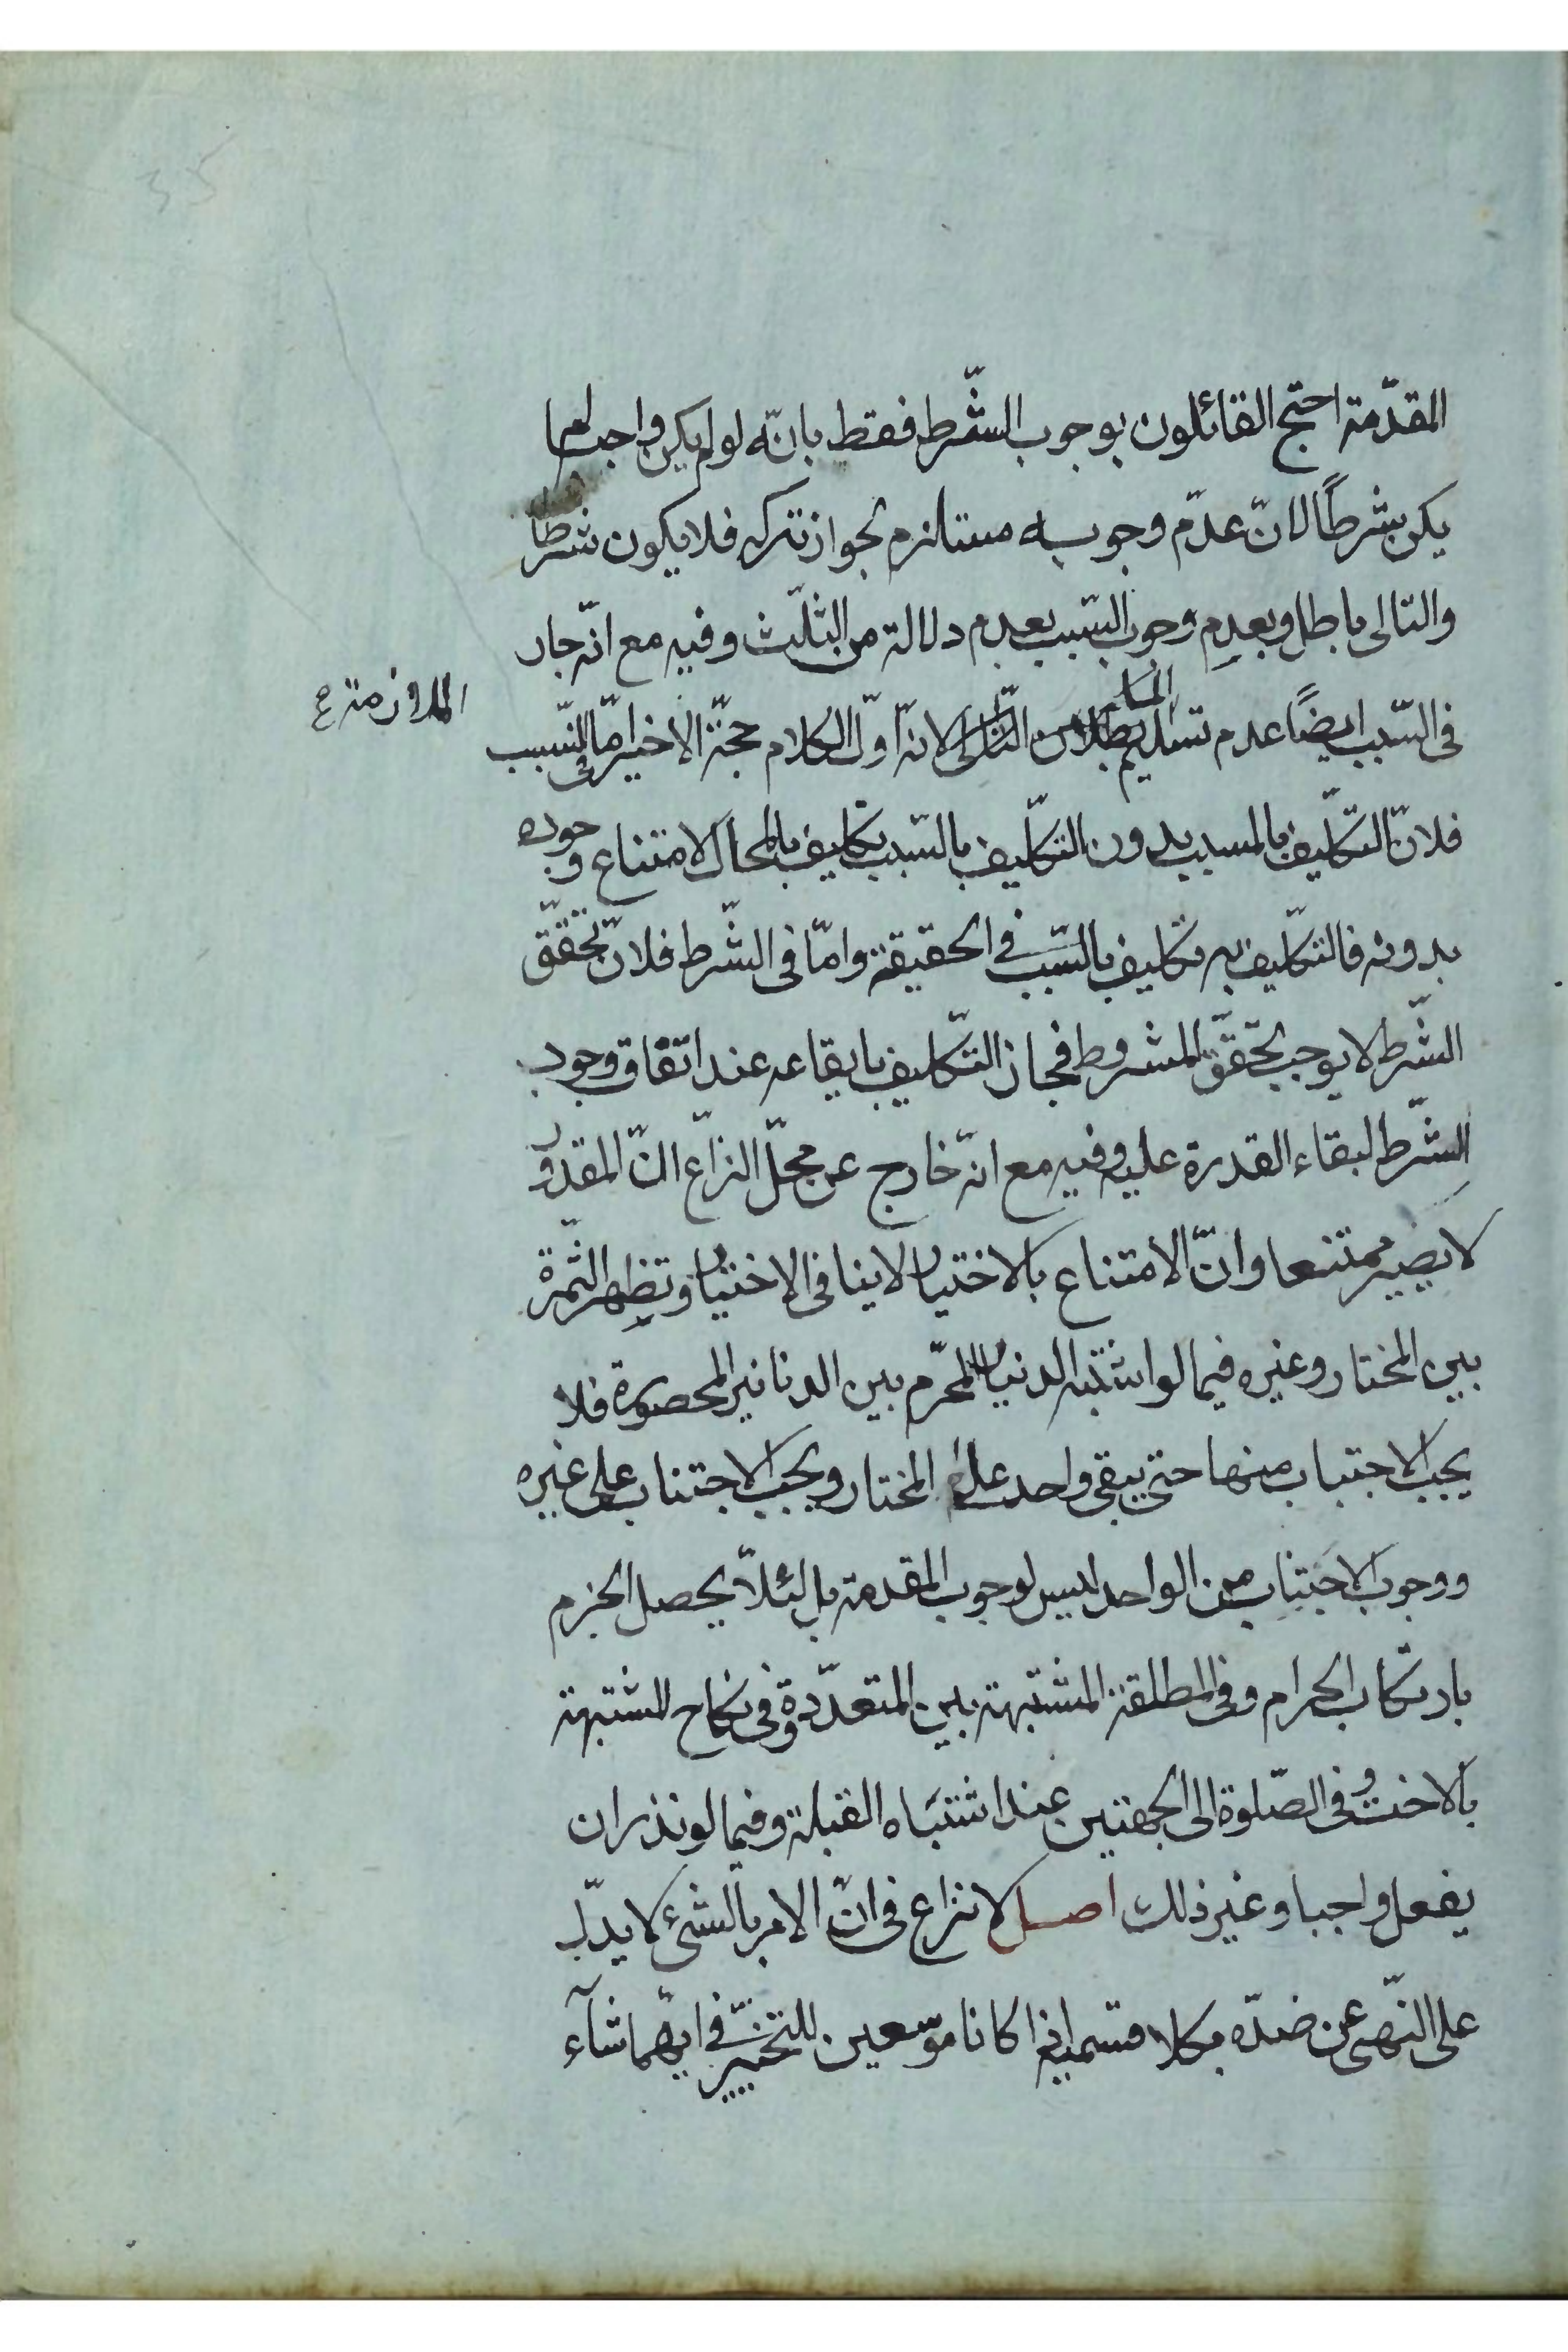 المقدّمة احتج القائلون بوجوب الشّرط فقط بانّه لو لم يكن واجبا لم
يكن بشرطًا لانّ عدم وجوبه مستلزم لجواز تركه فلا يكون شرطا
والتالى باطل وبعدم وجوب السّبب بعدم دلالة من الثلّث وفيه مع انّه جار
فى السّبب ايضًا عدم تسليم بطلان التالى لانّه اوّل الكلام حجّة الاخير امّا فى السّبب
الملازمة ع
فلانّ التّكليف بالمسبب بدون التّكليف بالسّبب تكليف بالمحال لامتناع وجوده
بدونه فالتّكليف به تكليف بالسّبب فى الحقيقة وامّا فى الشّرط فلانّ تحقّق
الشّرط لا يوجب تحقّق المشروط فجاز التّكليف بايقاعه عند اتّفاق وجود
الشّرط لبقاء القدرة عليه وفيه مع انّه خارج عن محلّ النزاع انّ المقدور
لا يصير ممتنعا وانّ الامتناع بالاختيار لا ينافى الاختيار وتظهر الثّمرة
بين المختار وغيره فيما لو اشتبه الدنيار المحرّم بين الدنانير المحصورة فلا
يجب الاجتناب منها حتى يبقى واحد على المختار ويجب الاجتناب على غيره
ووجوب الاجتناب من الواحد ليس لوجوب المقدمة بل لئلّا يحصل الجزم
بارتكاب الحرام وفى المطلقة المشتبهة بين المتعدّدة وفى نكاح المشتبهة
بالاخت وفى الصّلوة الى الجهتين عند اشتباه القبلة وفيما لو نذر ان
يفعل واجبا وغير ذلك اصل لا نزاع فى انّ الامر بالشئ لا يدلّ
على النّهى عن ضدّه بكلا قسميه اذا كانا موسّعين للتخيّير فى ايّهما شآء